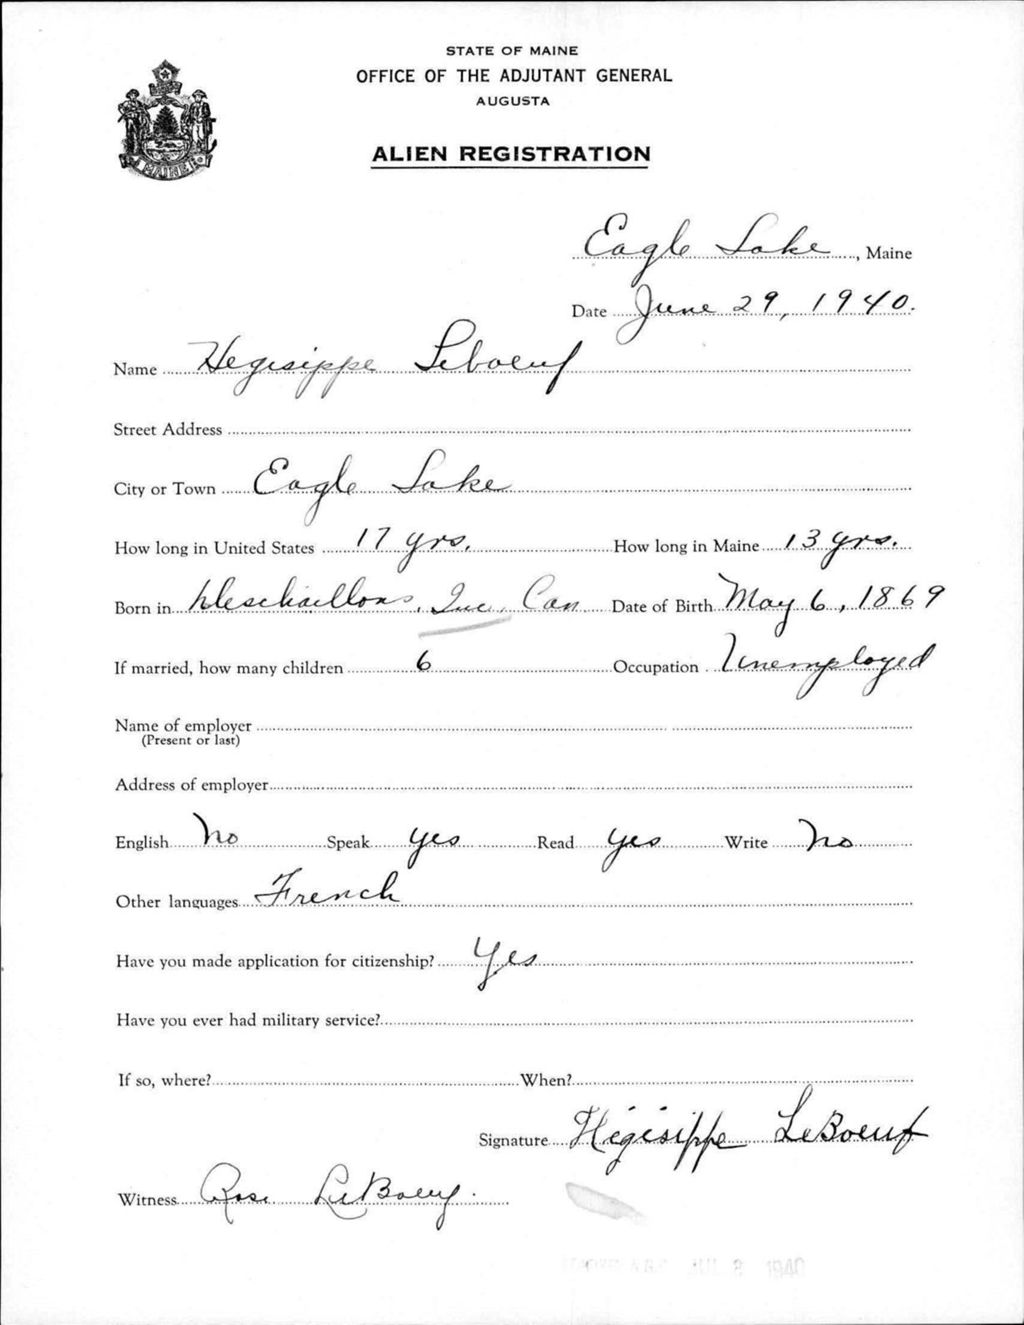 STATE OF MAINE
OFFICE OF THE ADJUTANT GENERAL
AUGUSTA
MAINE
ALIEN REGISTRATION
Eagle Lake, Maine
Date June 29, 1940.
Name Hegisippe Leboeuf
Street Address
City or Town Eagle Lake
How long in United States 17 yrs. How long in Maine 13 yrs.
Born in Deschaillons, Que, Can Date of Birth May 6, 1869
If married, how many children 6 Occupation Unemployed
Name of employer
(Present or last)
Address of employer
English No Speak yes Read yes Write No
Other languages French
Have you made application for citizenship? Yes
Have you ever had military service?
If so, where? When?
Signature Hégésippe LeBoeuf
Witness Rose LeBoeuf.
1940